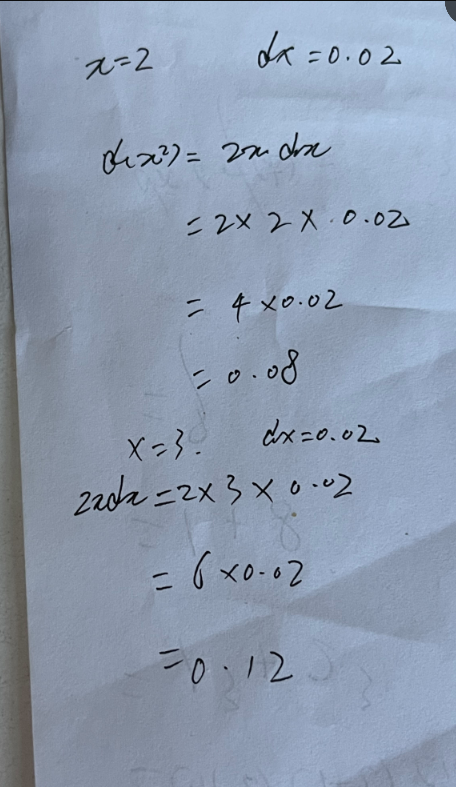 x=2 dx=0.02
d(x²)= 2x dx
=2×2×0.02
= 4×0.02
= 0.08
x=3. dx=0.02
2xdx=2×3×0.02
= 6×0.02
=0.12